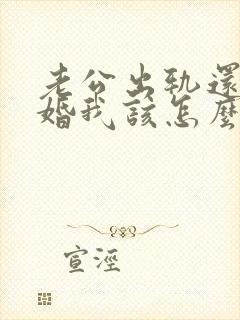 老公出軌還
婚我該怎麼
宣涇